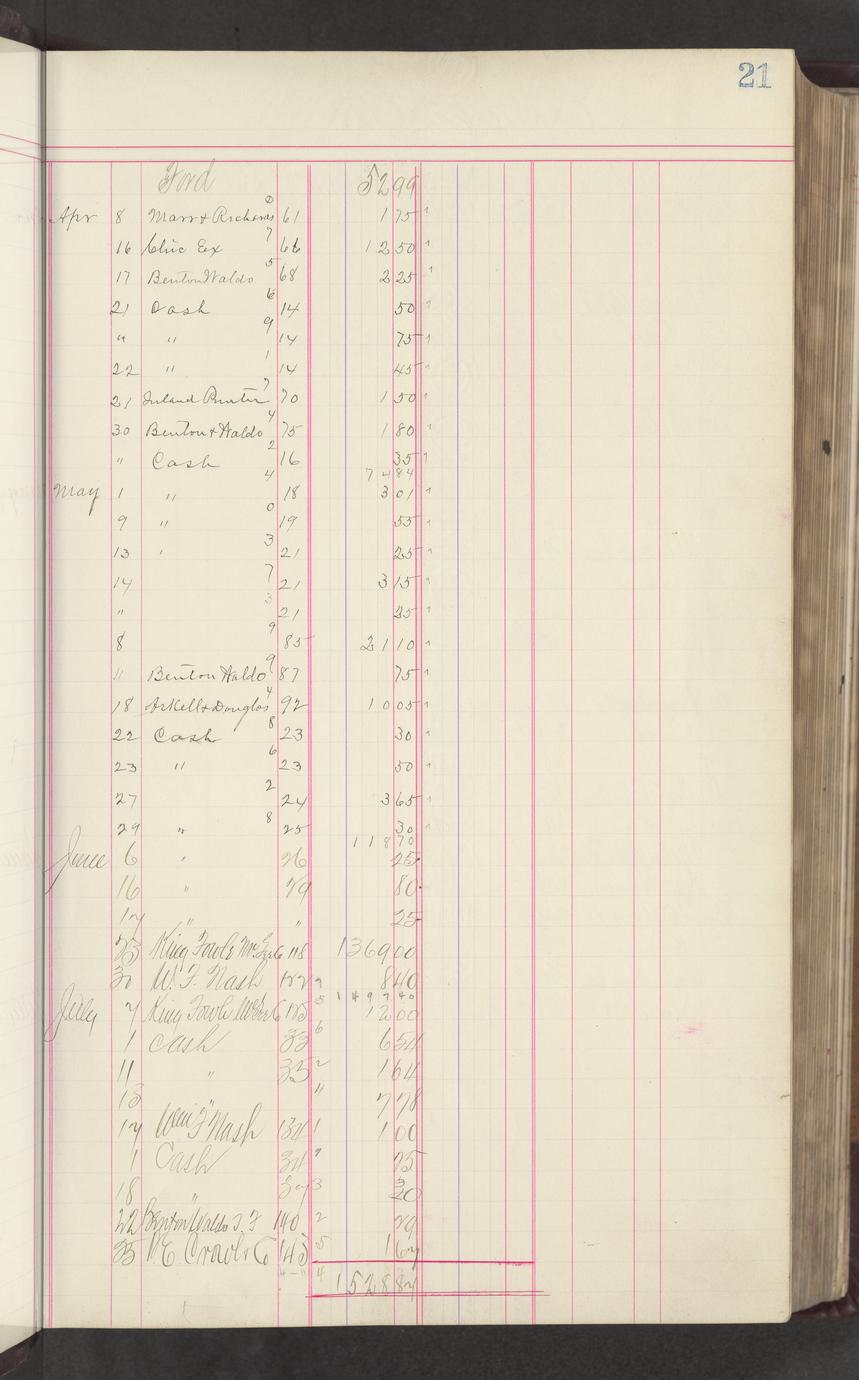 21
Ford 52 99
Apr 8 Marr & Richards 0 61 1 75
16 Chic Ex 7 66 12 50
17 Benton Waldo 5 68 2 25
21 Cash 6 14 50
" " 9 14 75
22 " 1 14 45
21 Inland Printer 7 70 1 50
30 Benton & Waldo 4 75 1 80
" Cash 2 16 35
74 84
May 1 " 4 18 3 01
9 " 0 19 55
13 " 3 21 25
14 7 21 3 15
" 3 21 25
8 9 85 21 10
" Benton Waldo 9 87 75
18 Arkell & Douglas 4 92 10 05
22 Cash 8 23 30
23 " 6 23 50
27 2 24 3 65
29 " 8 25 30
118 70
June 6 " 26 25
16 " 29 80
17 " " 25
23 King Fowle 118 1369 00
30 W. F. Nash 122 9 8 40
1497 40
July 7 King Fowle 125 5 12 00
1 Cash 33 6 6 54
11 " 35 2 1 64
13 " 11 7 78
17 Wm F Nash 134 1 1 00
1 Cash 34 7 25
18 " 37 3 20
22 Benton Waldo 140 2 29
25 Crowl Co 145 5 1 67
4 1528 87